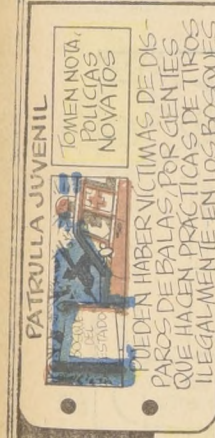 PATRULLA JUVENIL
TOMEN NOTA,
POLICÍAS
NOVATOS
BOSQUE
DEL
ESTADO
PUEDEN HABER VÍCTIMAS DE DIS-
PAROS DE BALAS, POR GENTES
QUE HACEN PRÁCTICAS DE TIROS
ILEGALMENTE EN LOS BOSQUES